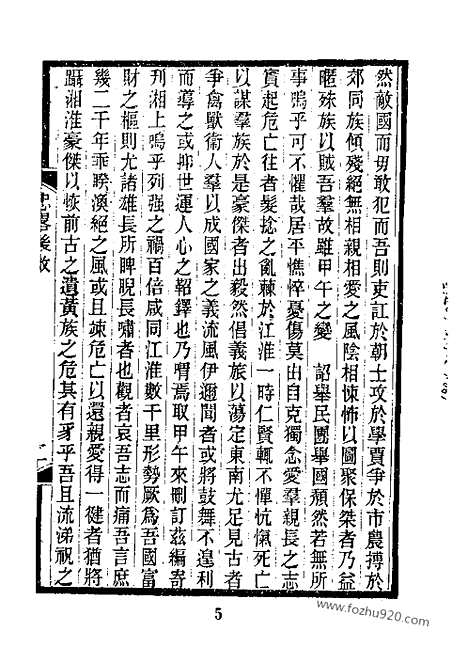 然敵國而毋敢犯而吾則吏訌於朝士攻於學賈爭於市農搏於
郊同族傾殘絕無相親相愛之風陰相悚怖以圖聚保桀者乃益
暱殊族以賊吾羣故雖甲午之變 詔舉民團舉國頹然若無所
事嗚乎可不懼哉居平憔悴憂傷莫出自克獨念愛羣親長之志
實起危亡往者髮捻之亂棘於江淮一時仁賢輒不憚忼慨死亡
以謀羣族於是豪傑者出毅然倡義族以蕩定東南尤足見古者
爭禽獸衞人羣以成國家之義流風伊邇聞者或將鼓舞不遑利
而導之或抑世運人心之韶鐸也乃喟焉取甲午來刪訂茲編寄
刋湘上嗚乎列强之禍百倍咸同江淮數千里形勢厥爲吾國富
財之樞則尤諸雄長所睥睨長嘯者也觀者哀吾志而痛吾言庶
幾二千年乖睽渙絕之風或且竦危亡以還親愛得一健者猶將
躡湘淮豪傑以恢前古之遺黃族之危其有豸乎吾且流涕視之
後敘
5
www.fozhu920.com